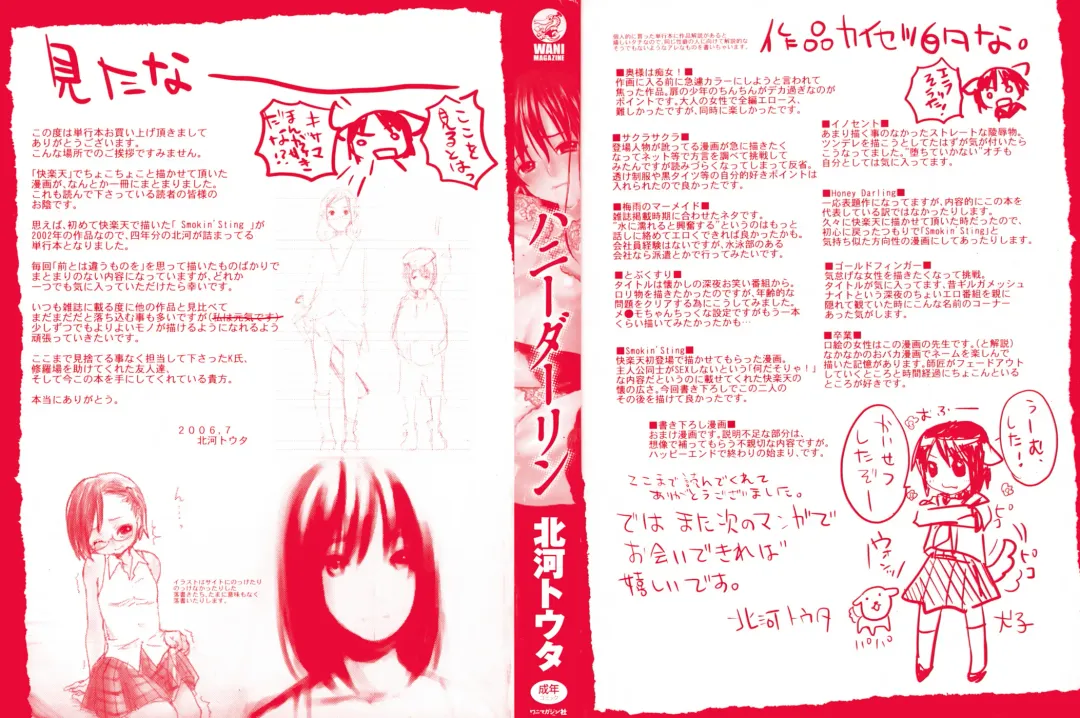 見たな
ここを
見るとはっ
キサマ
だまんがやがき
なん!?
この度は単行本お買い上げ頂きまして
ありがとうございます。
こんな場所でのご挨拶ですみません。
「快楽天」でちょこちょこと描かせて頂いた
漫画が、なんとか一冊にまとまりました。
これも読んで下さっている読者の皆様の
お陰です。
思えば、初めて快楽天で描いた「Smokin'Sting」が
2002年の作品なので、四年分の北河が詰まってる
単行本となりました。
毎回「前とは違うものを」を思って描いたものばかりで
まとまりのない内容になっていますが、どれか
一つでも気に入っていただけたら幸いです。
いつも雑誌に載る度に他の作品と見比べて
まだまだだと落ち込む事も多いですが(私は元気です)
少しずつでもよりよいモノが描けるようになれるよう
頑張っていきたいです。
ここまで見捨てる事なく担当して下さったK氏、
修羅場を助けてくれた友人達、
そして今この本を手にしてくれている貴方。
本当にありがとう。
2006.7
北河トウタ
ん…っ
イラストはサイトにのっけたり
のっけなかったりした
落書きたち。たまに意味もなく
落書いたりします。
WANI
MAGAZINE
ハニーダーリン
北河トウタ
成年
コミック
ワニマガジン社
個人的に買った単行本に作品解説があると
嬉しいタチなので、同じ性癖の人に向けて解説的な
そうでもないようなアレなものを書いちゃいます。
作品カイセツ的な。
エラ
そうだっ!
■奥様は痴女!■
作画に入る前に急遽カラーにしようと言われて
焦った作品。扉の少年のちんちんがデカ過ぎなのが
ポイントです。大人の女性で全編エロース、
難しかったですが、同時に楽しかったです。
■サクラサクラ■
登場人物が訛ってる漫画が急に描きたく
なってネット等で方言を調べて挑戦して
みたんですが読みづらくなってしまって反省。
透け制服や黒タイツ等の自分的好きポイントは
入れられたので良かったです。
■梅雨のマーメイド■
雑誌掲載時期に合わせたネタです。
“水に濡れると興奮する”というのはもっと
話しに絡めてエロくできれば良かったかも。
会社員経験はないですが、水泳部のある
会社なら派遣とかで行ってみたいです。
■とぶくすり■
タイトルは懐かしの深夜お笑い番組から。
ロリ物を描きたかったのですが、年齢的な
問題をクリアする為にこうしてみました。
メ●モちゃんちっくな設定ですがもう一本
くらい描いてみたかったかも…
■Smokin'Sting■
快楽天初登場で描かせてもらった漫画。
主人公同士がSEXしないという「何だそりゃ!」
な内容だというのに載せてくれた快楽天の
懐の広さ。今回書き下ろしでこの二人の
その後を描けて良かったです。
■書き下ろし漫画■
おまけ漫画です。説明不足な部分は、
想像で補ってもらう不親切な内容ですが。
ハッピーエンドで終わりの始まり、です。
■イノセント■
あまり描く事のなかったストレートな陵辱物。
ツンデレを描こうとしてたはずが気が付いたら
こうなってました。“堕ちていかない”オチも
自分としては気に入ってます。
■Honey Darling■
一応表題作になってますが、内容的にこの本を
代表している訳ではなかったりします。
久々に快楽天に描かせて頂いた時だったので、
初心に戻ったつもりで「Smokin'Sting」と
気持ち似た方向性の漫画にしてあったりします。
■ゴールドフィンガー■
気怠げな女性を描きたくなって挑戦。
タイトルが気に入ってます、昔ギルガメッシュ
ナイトという深夜のちょいエロ番組を親に
隠れて観ていた時にこんな名前のコーナー
あった気がします。
■卒業■
口絵の女性はこの漫画の先生です。(と解説)
なかなかのおバカ漫画でネームを楽しんで
描いた記憶があります。師匠がフェードアウト
していくところと時間経過にちょこんといる
ところが好きです。
ここまで読んでくれて
ありがとうございました。
では また次のマンガで
お会いできれば
嬉しいです。
北河トウタ
おふー
うーむ、
した!
かいせつ
したぞー
ウンッ
ピコ
ピコ
パパ
犬子